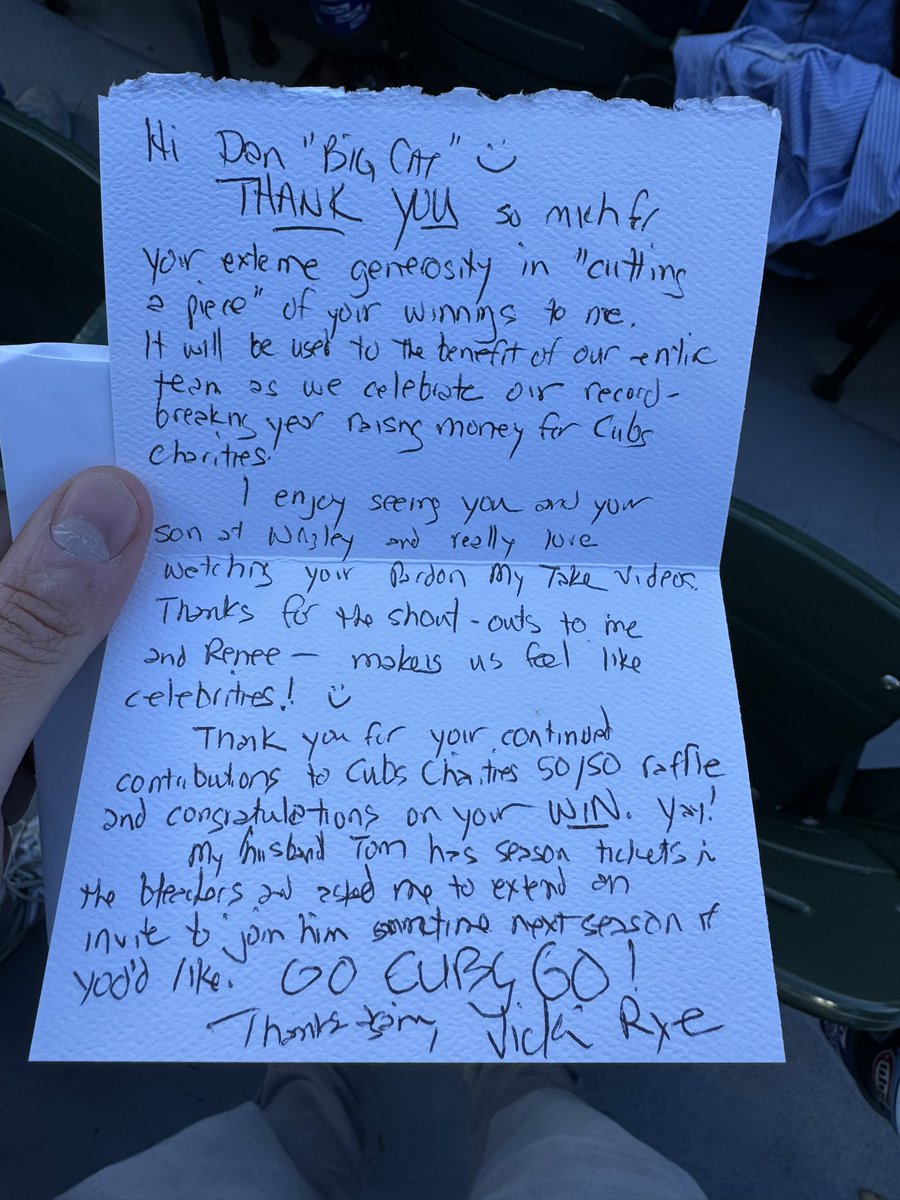 Hi Dan "BIG CAT" :)
THANK YOU so much for
your extreme generosity in "cutting
a piece" of your winnings to me.
It will be used to the benefit of our entire
team as we celebrate our record-
breaking year raising money for Cubs
Charities!
I enjoy seeing you and your
son at Wrigley and really love
watching your Pardon My Take videos.
Thanks for the shout-outs to me
and Renee — makes us feel like
celebrities! :)
Thank you for your continued
contributions to Cubs Charities 50/50 raffle
and congratulations on your WIN. Yay!
My husband Tom has season tickets in
the bleachers and asked me to extend an
invite to join him sometime next season if
you'd like. GO CUBS GO!
Thanks again, Vicki Rye